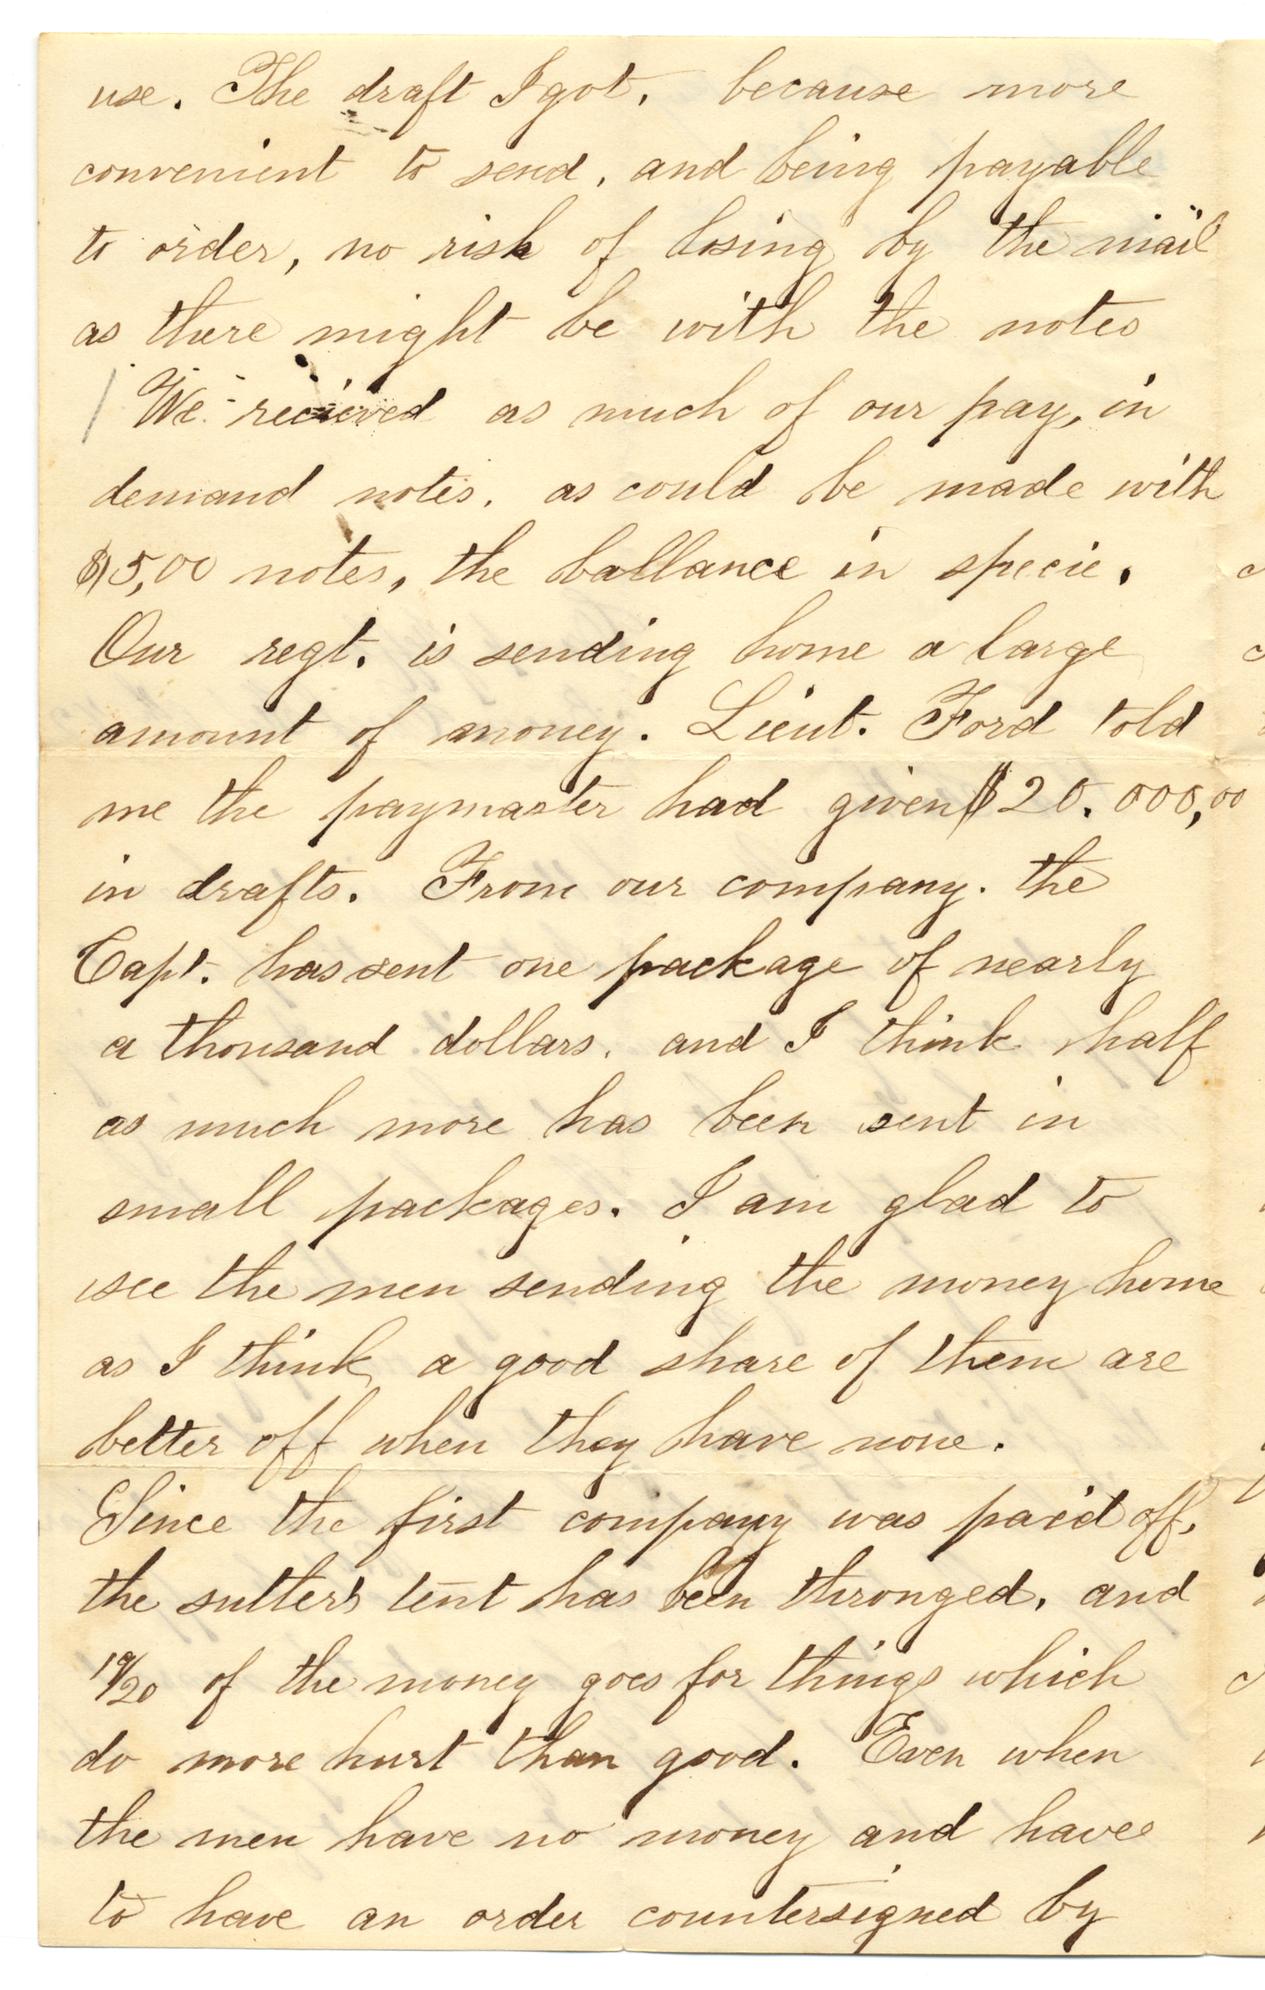 use. The draft I got, because more
convenient to send, and being payable
to order, no risk of losing by the mail
as there might be with the notes
We recieved as much of our pay, in
demand notes, as could be made with
$5,00 notes, the ballance in specie.
Our regt. is sending home a large
amount of money. Lieut. Ford told
me the paymaster had given $20.000,00
in drafts. From our company. the
Capt. has sent one package of nearly
a thousand dollars, and I think half
as much more has been sent in
small packages. I am glad to
see the men sending the money home
as I think a good share of them are
better off when they have none.
Since the first company was paid off,
the sutlers tent has been thronged, and
19/20 of the money goes for things which
do more hurt than good. Even when
the men have no money and have
to have an order countersigned by